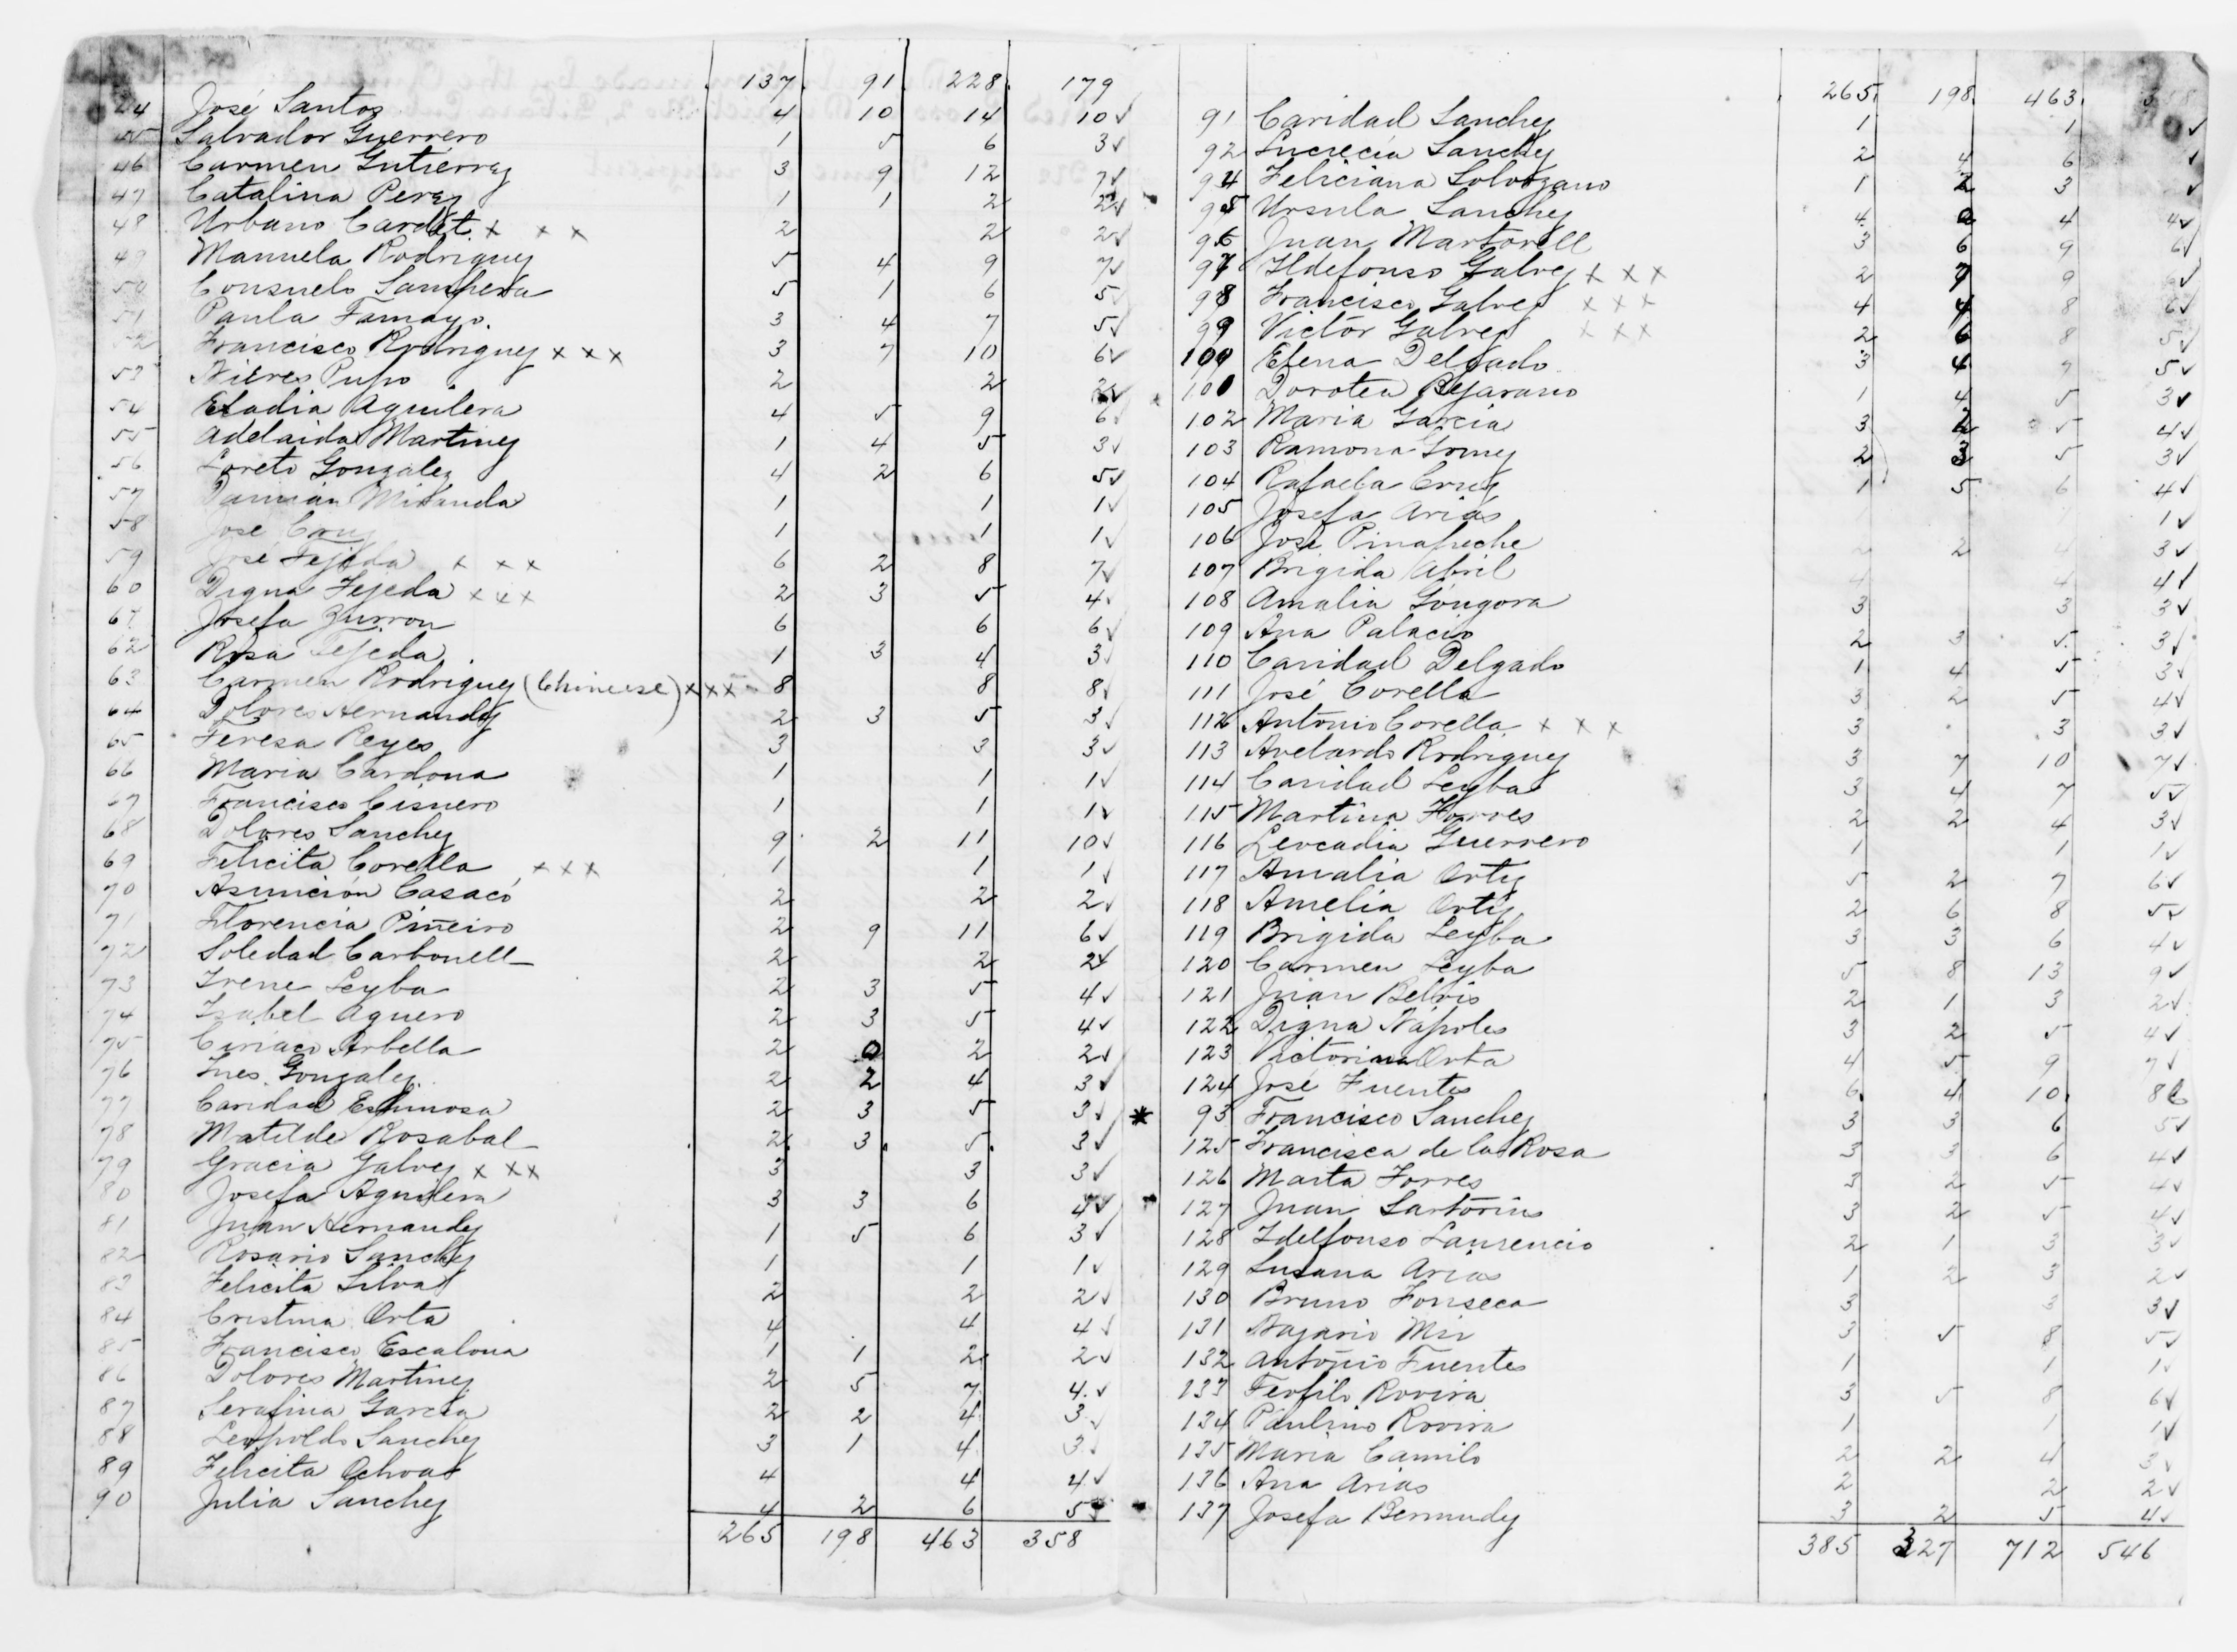 137 91 228 179
44 José Santos 4 10 14 10✓
45 Salvador Guerrero 1 5 6 3✓
46 Carmen Gutiérrez 3 9 12 7✓
47 Catalina Perez 1 1 2 2✓
48 Urbano Cardet x x x 2 2 2✓
49 Manuela Rodriguez 5 4 9 7✓
50 Consuelo Sanpera 5 1 6 5✓
51 Paula Tamayo. 3 4 7 5✓
52 Francisco Rodriguez x x x 3 7 10 6✓
53 Nieves Pupo 2 2 2✓
54 Eladia Aguilera 4 5 9 6✓
55 Adelaida Martinez 1 4 5 3✓
56 Loreto Gonzalez 4 2 6 5✓
57 Damián Miranda 1 1 1✓
58 José Cruz 1 1 1✓
59 José Tejeda x x x 6 2 8 7✓
60 Digna Tejeda x x x 2 3 5 4✓
61 Josefa Zurron 6 6 6✓
62 Rosa Tejeda 1 3 4 3✓
63 Carmen Rodriguez (Chinese) x x x 8 8 8✓
64 Dolores Hernandez 2 3 5 3✓
65 Teresa Reyes 3 3 3✓
66 Maria Cardona 1 1 1✓
67 Francisco Cisnero 1 1 1✓
68 Dolores Sanchez 9 2 11 10✓
69 Felicita Corella x x x 1 1 1✓
70 Asunción Casacó 2 2 2✓
71 Florencia Piñeiro 2 9 11 6✓
72 Soledad Carbonell 2 2 2✓
73 Irene Leyba 2 3 5 4✓
74 Isabel Aguero 2 3 5 4✓
75 Ciriaco Arbella 2 0 2 2✓
76 Ines Gonzalez 2 2 4 3✓
77 Caridad Espinosa 2 3 5 3✓
78 Matilde Rosabal 2 3 5 3✓
79 Gracia Galvez x x x 3 3 3✓
80 Josefa Aguilera 3 3 6 4✓
81 Juan Hernandez 1 5 6 3✓
82 Rosario Sanchez 1 1 1✓
83 Felicita Silva 2 2 2✓
84 Cristina Orta 4 4 4✓
85 Francisco Escalona 1 1 2 2✓
86 Dolores Martinez 2 5 7 4✓
87 Serafina Garcia 2 2 4 3✓
88 Leopoldo Sanchez 3 1 4 3✓
89 Felicita Ochoa 4 4 4✓
90 Julia Sanchez 4 2 6 5✓
265 198 463 358
265 198 463
91 Caridad Sanchez 1 1 ✓
92 Lucrecia Sanchez 2 4 6 ✓
94 Feliciana Solorzano 1 2 3 ✓
95 Ursula Sanchez 4 0 4 4✓
96 Juan Martorell 3 6 9 6✓
97 Ildefonso Galvez x x x 2 7 9 6✓
98 Francisco Galvez x x x 4 4 8 6✓
99 Victor Galvez x x x 2 6 8 5✓
100 Elena Delgado 3 4 7 5✓
101 Dorotea Bejarano 1 4 5 3✓
102 Maria Garcia 3 2 5 4✓
103 Ramona Gomez 2 3 5 3✓
104 Rafaela Cruz 1 5 6 4✓
105 Josefa Arias 1✓
106 José Pinapeche 2 2 4 3✓
107 Brigida Abril 4 4 4✓
108 Amalia Góngora 3 3 3✓
109 Ana Palacio 2 3 5 3✓
110 Caridad Delgado 1 4 5 3✓
111 José Corella 3 2 5 4✓
112 Antonio Corella x x x 3 3 3✓
113 Avelardo Rodriguez 3 7 10 7✓
114 Caridad Leyba 3 4 7 5✓
115 Martina Torres 2 2 4 3✓
116 Leocadia Guerrero 1 1 1✓
117 Amalia Ortiz 5 2 7 6✓
118 Amelia Ortiz 2 6 8 5✓
119 Brigida Leyba 3 3 6 4✓
120 Carmen Leyba 5 8 13 9✓
121 Juan Belvis 2 1 3 2✓
122 Digna Nápoles 3 2 5 4✓
123 Victorina Orta 4 5 9 7✓
124 José Fuentes 6 4 10 8✓
* 93 Francisco Sanchez 3 3 6 5✓
125 Francisca de la Rosa 3 3 6 4✓
126 Marta Torres 3 2 5 4✓
127 Juan Sartorius 3 2 5 4✓
128 Idelfonso Laurencio 2 1 3 3✓
129 Susana Arias 1 2 3 2✓
130 Bruno Fonseca 3 3 3✓
131 Nazario Mir 3 5 8 5✓
132 Antonio Fuentes 1 1 1✓
133 Teofilo Rovira 3 5 8 6✓
134 Paulino Rovira 1 1 1✓
135 Maria Camilo 2 2 4 3✓
136 Ana Arias 2 2 2✓
137 Josefa Bermudez 3 2 5 4✓
385 327 712 546